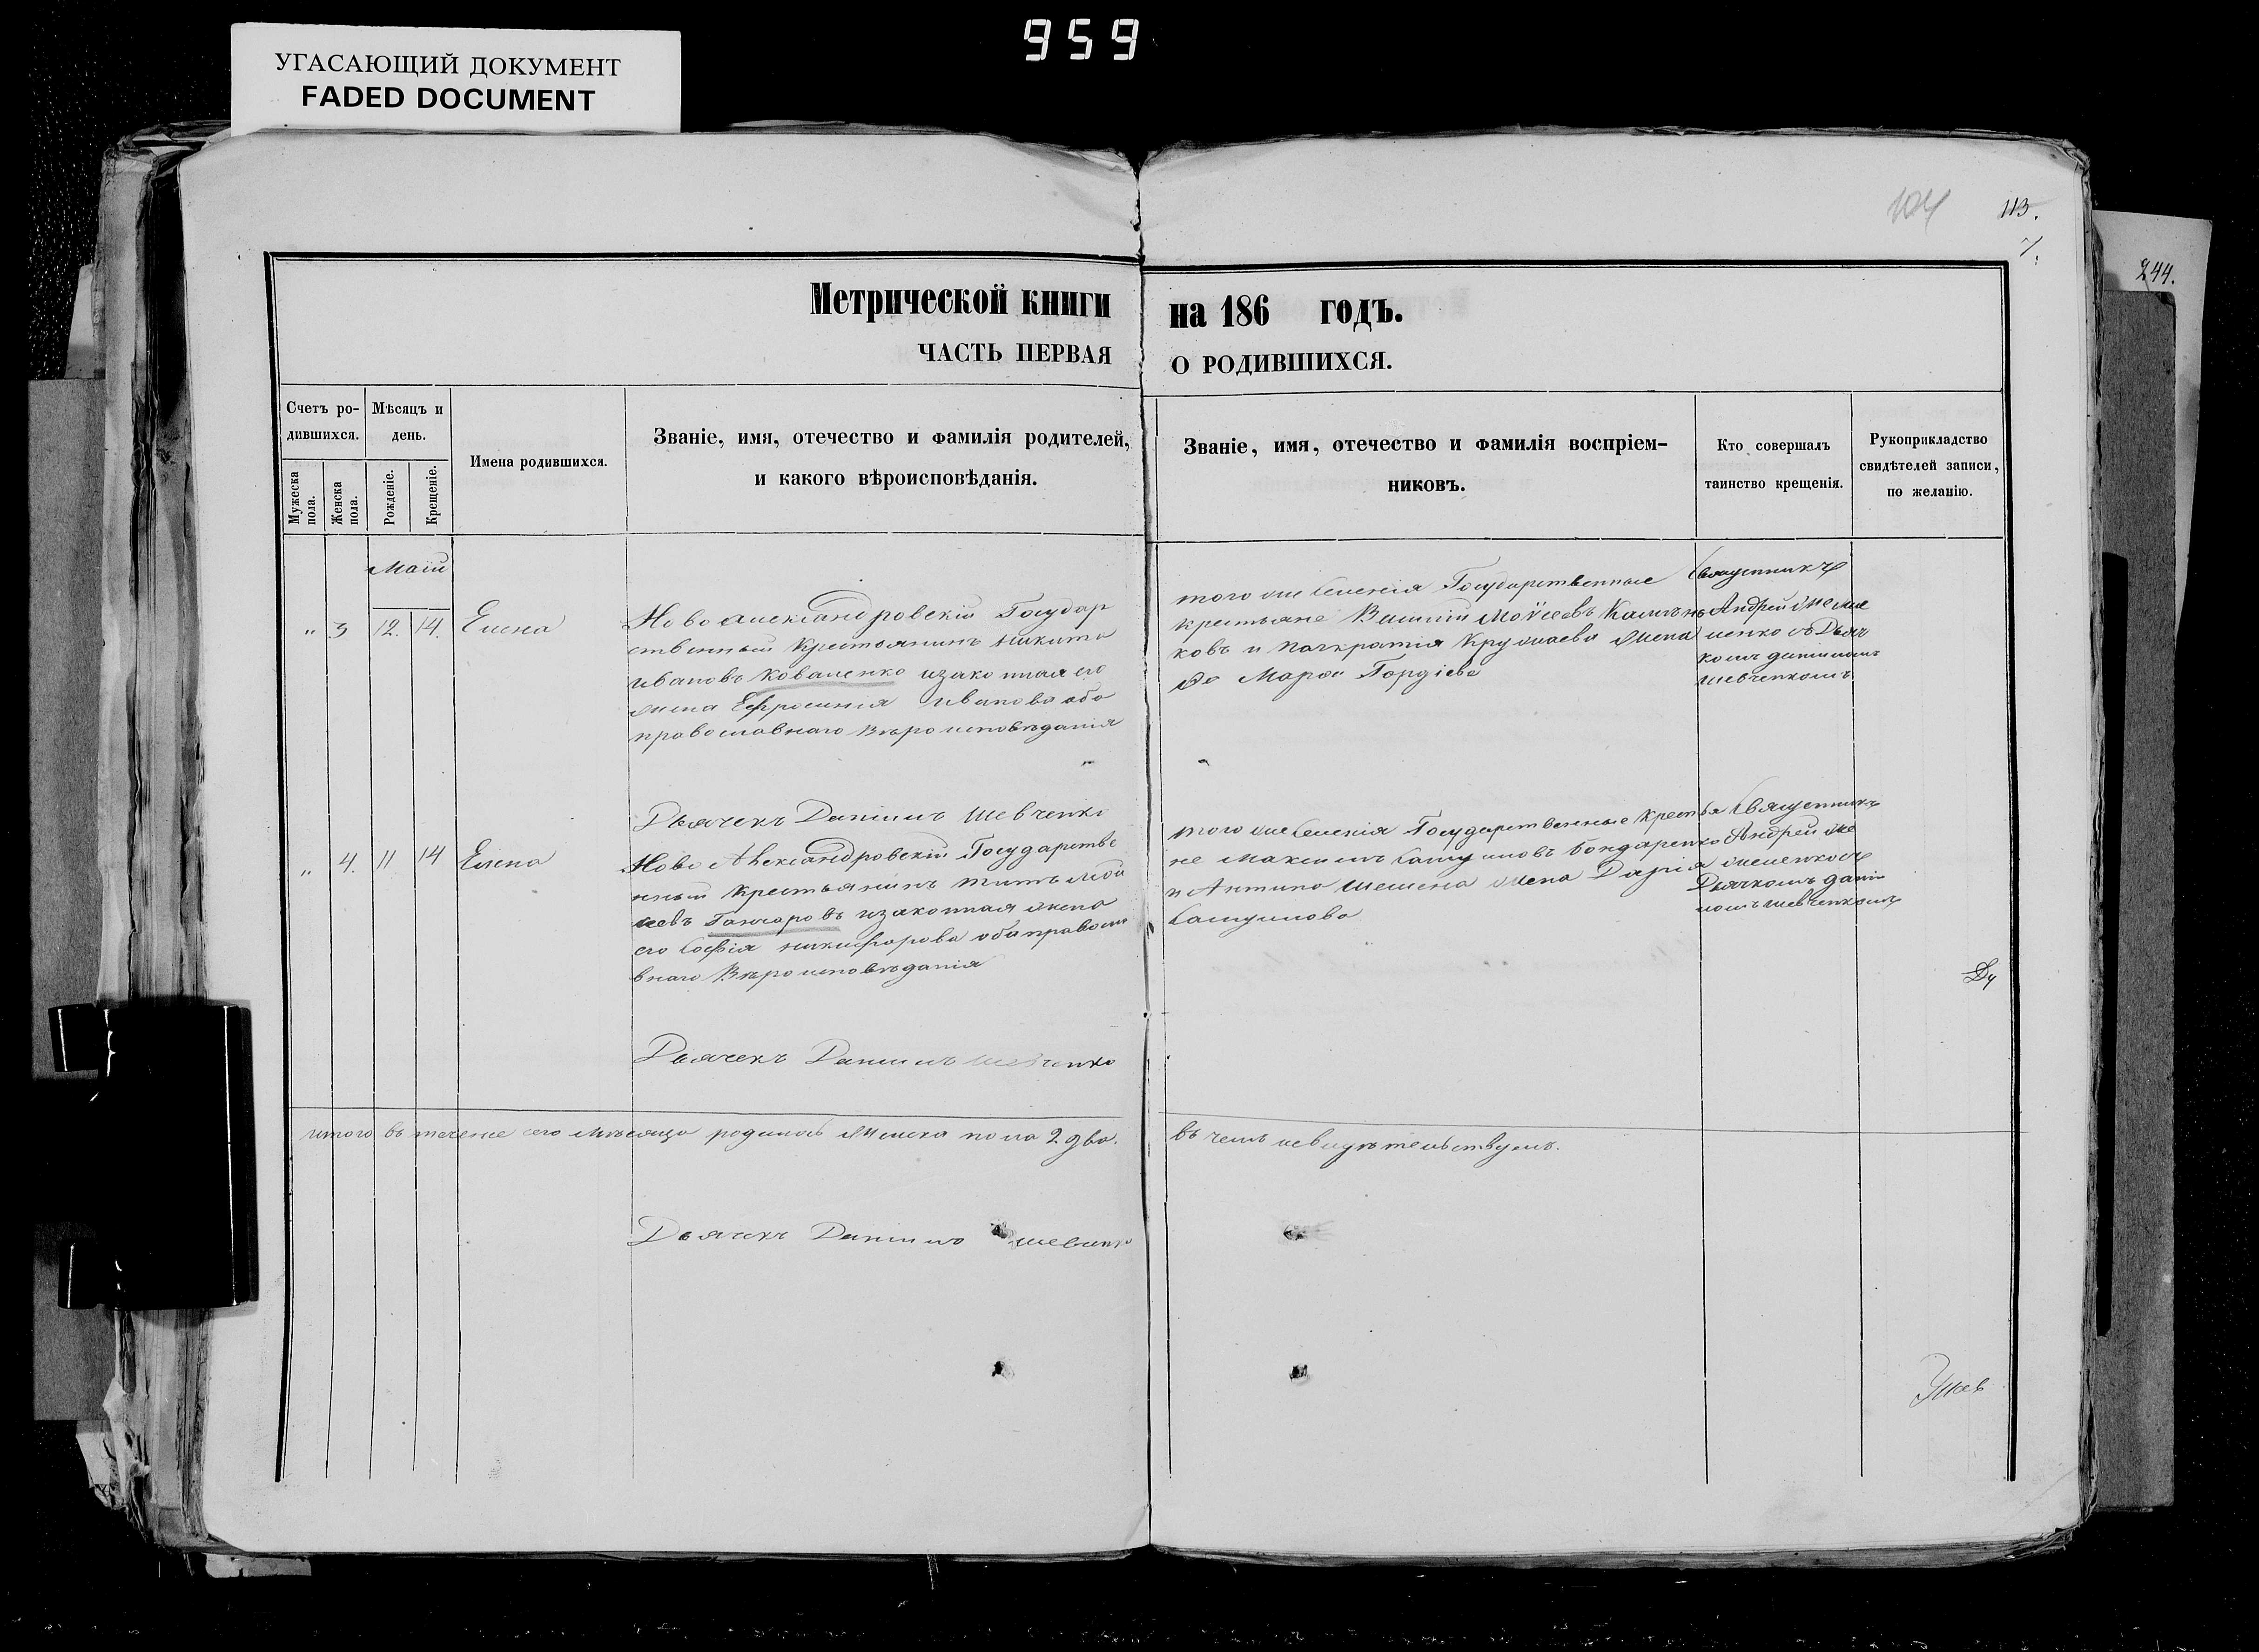 959
УГАСАЮЩИЙ ДОКУМЕНТ
FADED DOCUMENT
104
113.
7.
244.
Метрической книги на 186 годъ.
ЧАСТЬ ПЕРВАЯ О РОДИВШИХСЯ.
Счетъ ро-
дившихся.
Мужеска
пола.
Женска
пола.
Мѣсяцъ и
день.
Рожденіе.
Крещеніе.
Имена родившихся.
Званіе, имя, отечество и фамилія родителей,
и какого вѣроисповѣданія.
Званіе, имя, отечество и фамилія воспріем-
никовъ.
Кто совершалъ
таинство крещенія.
Рукоприкладство
свидѣтелей записи,
по желанію.
Маій
" 3 12. 14. Елена
Новоалександровскій Государ
ственный крестьянинъ Никита
Ивановъ Коваленко изаконная его
жена Ефросинія Иванова оба
православнаго Вѣроисповѣданія
того же Селенія Государственные
крестьяне Моѵсеевъ
ковъ и жена
Марѳа Гордіева
Священникъ
Андрей Мелен
ценко съ Дьяч
комъ Даніиломъ
Шевченкомъ
Дьячекъ Даніилъ Шевченко
" 4. 11 14 Елена
Ново Александровскій Государстве
нный Крестьянинъ Титъ
сеевъ Ганчаровъ изаконная жена
его Софія Никифорова обаправосла
внаго Вѣроисповѣданія
того же Селенія Государственные Крестья
не Максимъ Бондаренко
и Антипа жена Дарія
Священникъ
Андрей
Дьячкомъ Даніи
ломъ Шевченкомъ
Ду
Дьячекъ Даніилъ Шевченко
итого въ течение сего Мѣсяца родилось Женска пола 2 два. въ чемъ исвидѣтельствуемъ.
Дьячекъ Даніилъ Шевченко